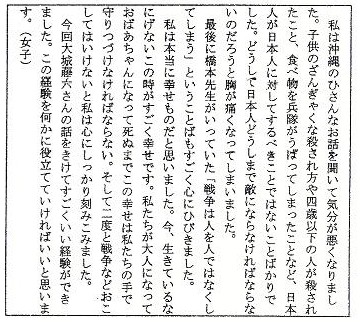 私は沖縄のひさんなお話を聞いて気分が悪くなりまし
た。子供のざんぎゃくな殺され方や四歳以下の人が殺され
たこと、食べ物を兵隊がうばってしまったことなど、日本
人が日本人に対してするべきことではないことばかりで
した。どうして日本人どうしまで敵にならなければならな
いのだろうと胸が痛くなってしまいました。
最後に橋本先生がいっていた「戦争は人を人ではなくし
てしまう」ということばもすごく心にひびきました。
私は本当に幸せものだと思いました。今、生きているな
にげないこの時がすごく幸せです。私たちが大人になって
おばあちゃんになって死ぬまでこの幸せは私たちの手で
守りつづけなければならない。そして二度と戦争などおこ
してはいけないと私は心にしっかり刻みこみました。
今回大城藤六さんの話をきけてすごくいい経験ができ
ました。この経験を何かに役立てていければいいと思いま
す。（女子）